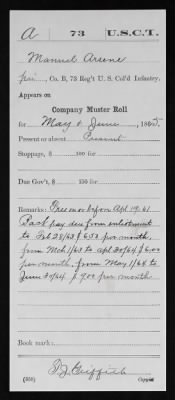 A 73 U.S.C.T.
Manuel Arsene
Co. B, 73 Reg't U. S. Col'd Infantry.
Appears on
Company Muster Roll
for May & June, 1865.
Present or absent Present
Stoppage, $ 100 for
Due Gov't, $ 100 for
Remarks: Free on or before Apl 19. 61
Back pay due from enlistment
to Feb 28/63 $6.50 per month,
from Mch 1/63 to apl 30/64 $6.00
per month, from May 1/64 to
June 30/64 $9.00 per month
Book mark:
Griffith
Copyist